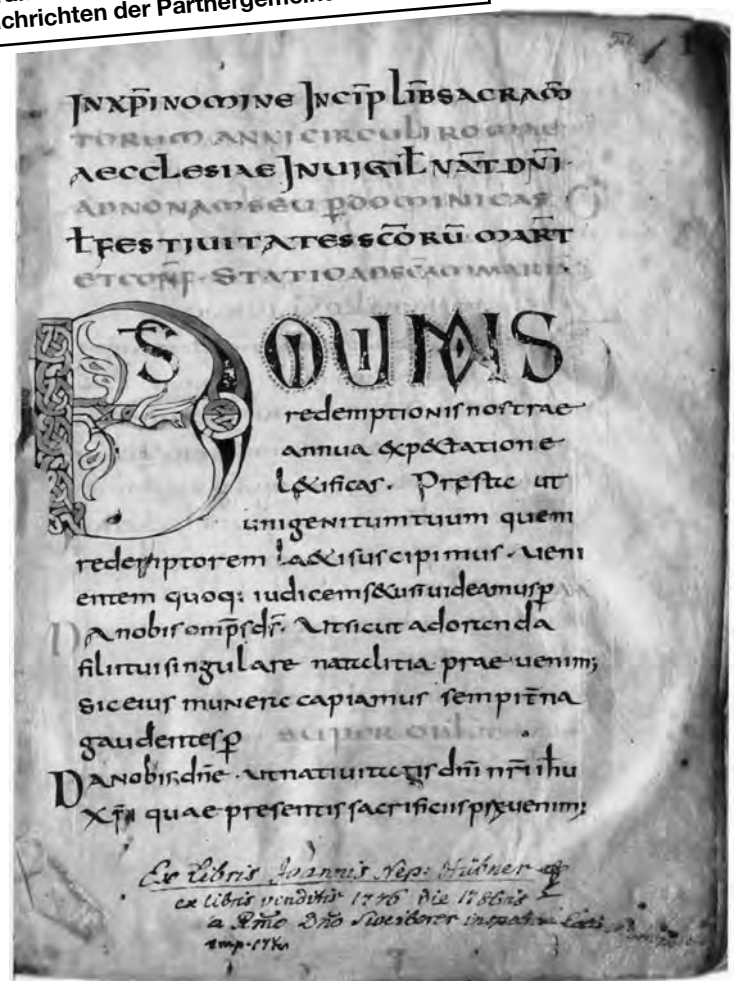 chrichten der Parthergemein
JNXP̄INOMINE JNCIP̄ LIB̄SACRAM̄
TORUM ANNI CIRCULI ROMAE
AECCLESIAE JNUIGIL̄ NAT̄DN̄I·
ADNONAMSEU P̱DOMINICAS
ł FESTIUITATESSC̄ORŪ MART̄
ETCONF̄· STATIOADSC̄AMMARIA
DS QUI NOS
redemptionisnostrae
annua exp&atione
l&ificas. Presta ut
unigenitumtuum quem
redemptorem la&isuscipimus· ueni
entem quoq: iudicems&uruuideamusp̱
Danobisomp̄sds̄· Utsicut adoranda
filiituisingulare natalitia praeuenim;
siceius munera capiamus sempit̄na
gaudentesp̱
SUPER OBL
Danobis,dn̄e· utnatiuitatis dn̄i nr̄i ih̄u
xp̄i quae presentissacrificiispraeuenim;
Ex Libris Joannis Nep: Hübner
ex libris venditis 1776 die
a Rm̄o Dn̄o